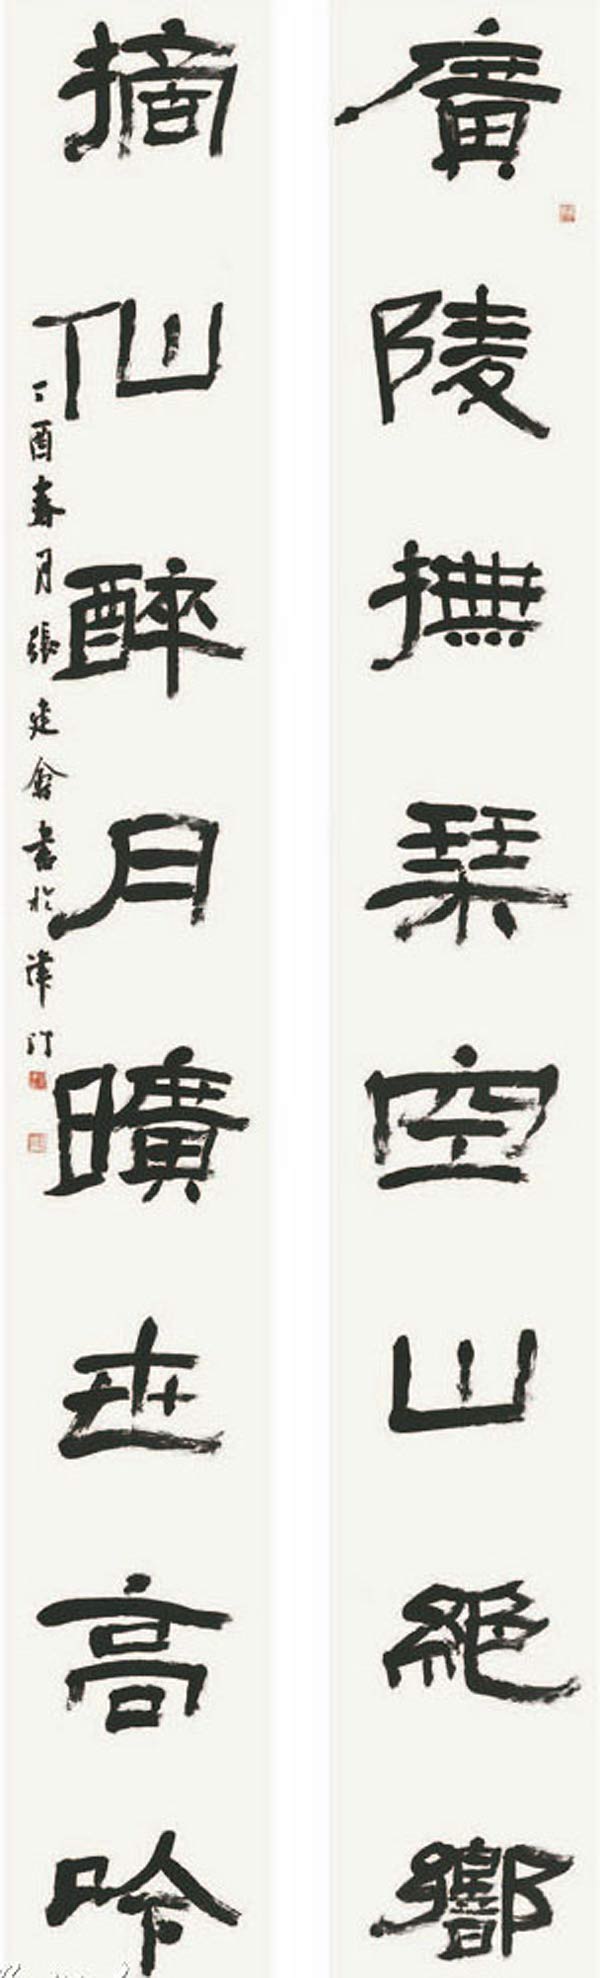 廣陵撫琹空山絕響
摘仙醉月曠世高吟
丁酉春月張建會書於津門